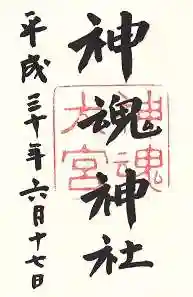 神魂神社
神魂
大宮
平成三十年六月十七日